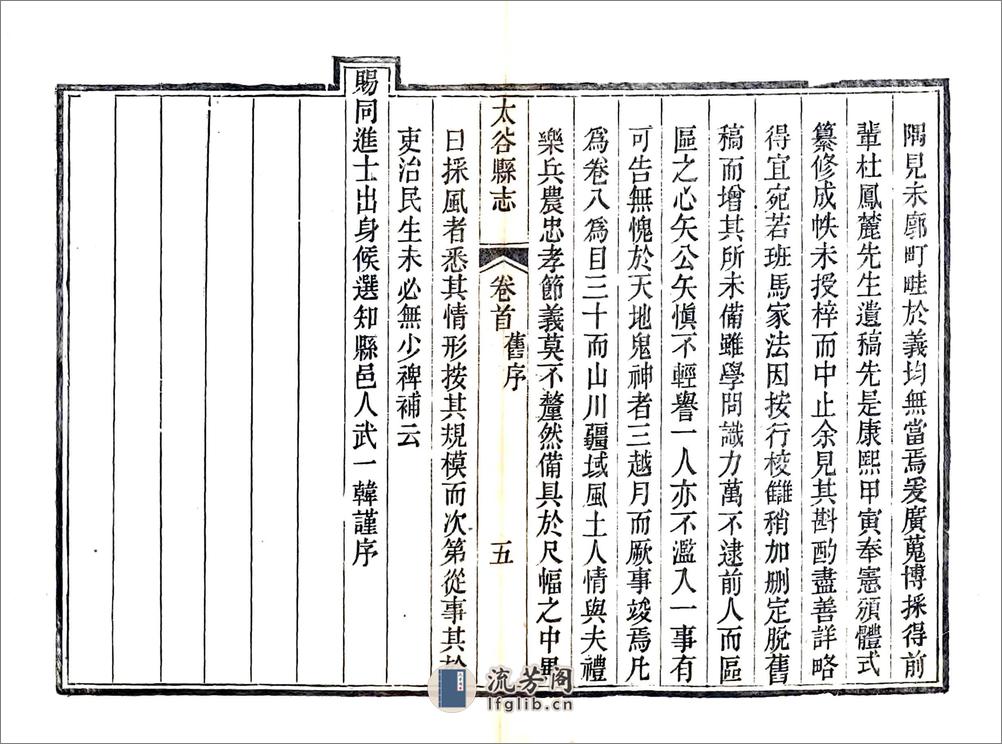 隅見未廓町畦於義均無當焉爰廣蒐博採得前
輩杜鳳麓先生遺稿先是康熙甲寅奉憲頒體式
纂修成帙未授梓而中止余見其斟酌盡善詳略
得宜宛若班馬家法因按行校讎稍加刪定脫舊
稿而增其所未備雖學問識力萬不逮前人而區
區之心矢公矢愼不輕譽一人亦不濫入一事有
可告無愧於天地鬼神者三越月而厥事竣焉凡
爲卷八爲目三十而山川疆域風土人情與夫禮
樂兵農忠孝節義莫不釐然備具於尺幅之中異
太谷縣志 卷首 舊序 五
日採風者悉其情形按其規模而次第從事其於
吏治民生未必無少裨補云
賜同進士出身候選知縣邑人武一韓謹序
流芳阁
lfglib.cn